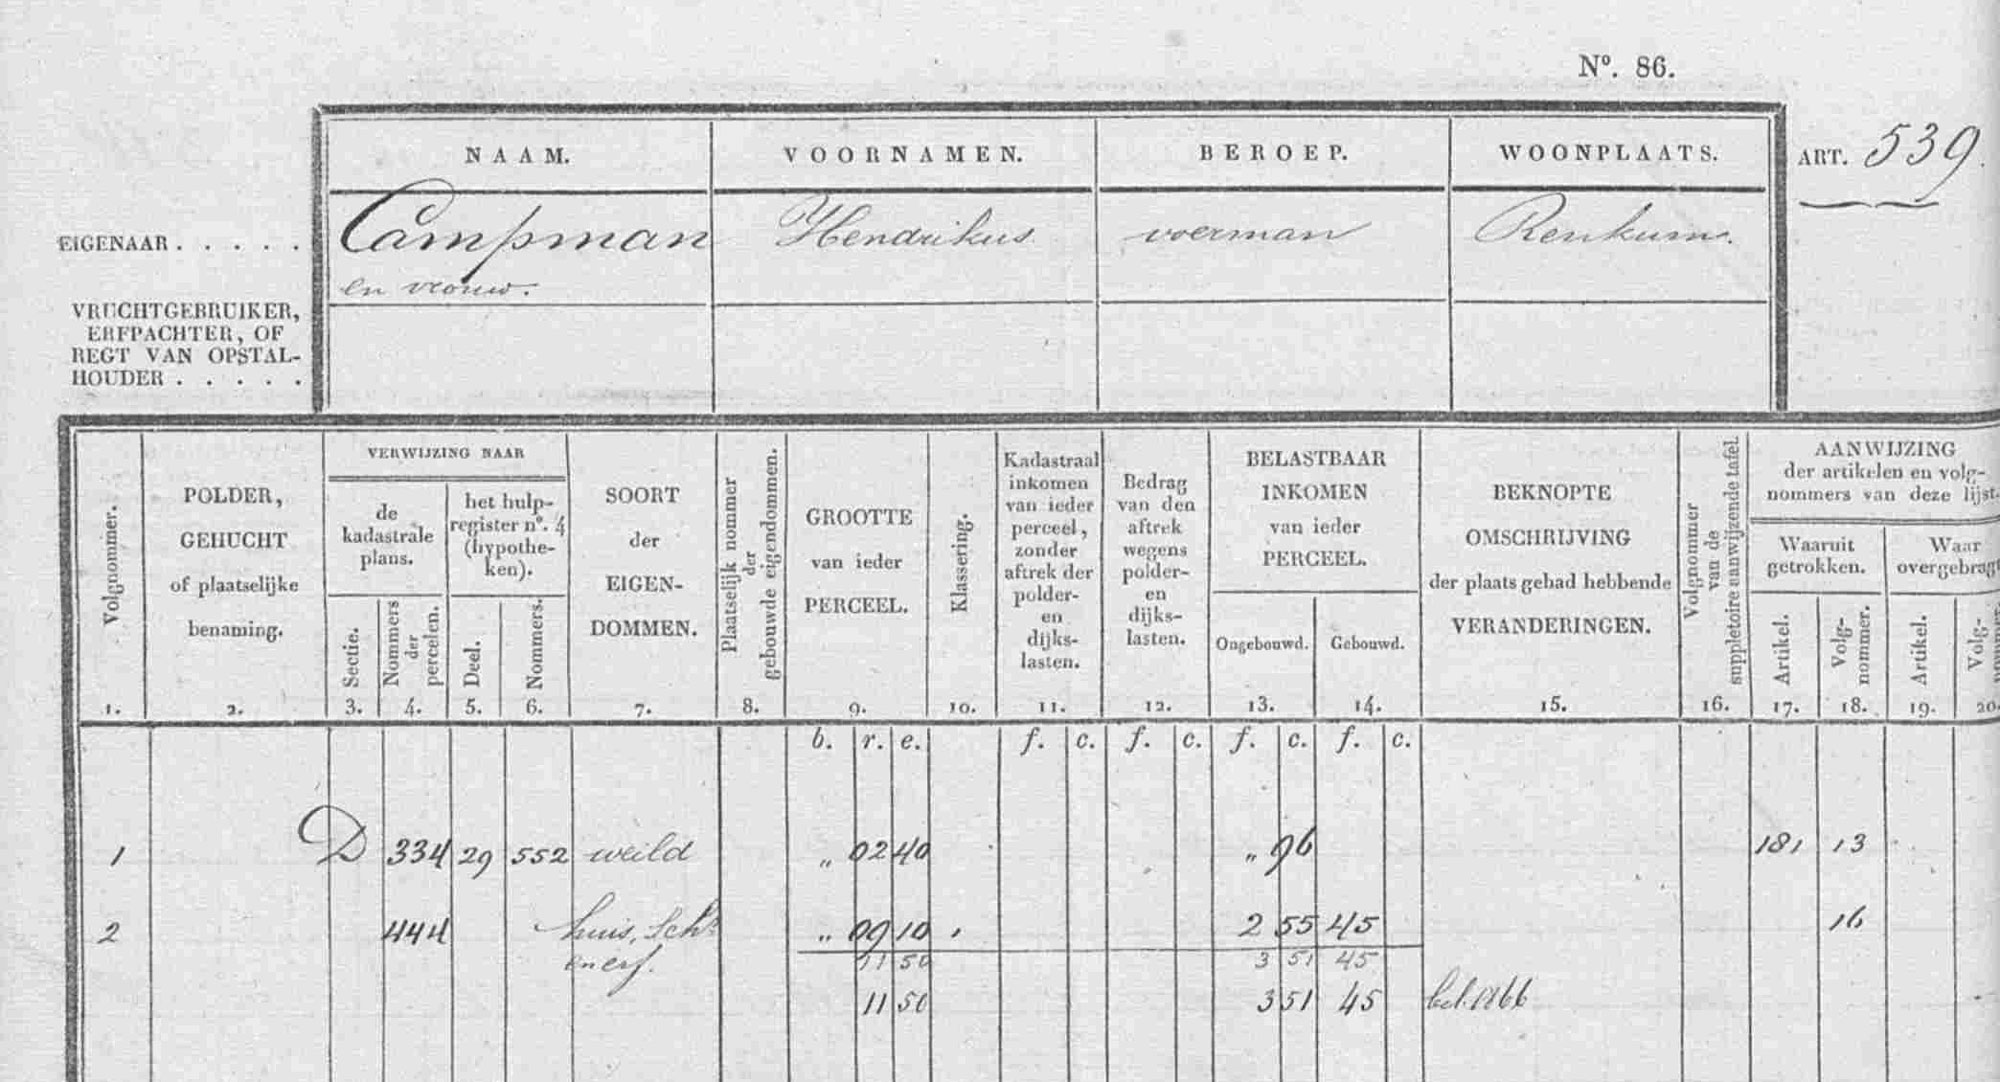 N°. 86.
NAAM. VOORNAMEN. BEROEP. WOONPLAATS. ART. 539.
EIGENAAR . . . . . Campman Hendrikus voerman Renkum.
en vrouw.
VRUCHTGEBRUIKER,
ERFPACHTER, OF
REGT VAN OPSTAL-
HOUDER . . . . .
Volgnommer.
POLDER,
GEHUCHT
of plaatselijke
benaming.
VERWIJZING NAAR
de
kadastrale
plans.
het hulp-
register n°. 4
(hypothe-
ken).
Sectie.
Nommers
der
percelen.
Deel.
Nommers.
SOORT
der
EIGEN-
DOMMEN.
Plaatselijk nommer
der
gebouwde eigendommen.
GROOTTE
van ieder
PERCEEL.
Klassering.
Kadastraal
inkomen
van ieder
perceel,
zonder
aftrek der
polder-
en
dijks-
lasten.
Bedrag
van den
aftrek
wegens
polder-
en
dijks-
lasten.
BELASTBAAR
INKOMEN
van ieder
PERCEEL.
Ongebouwd. Gebouwd.
BEKNOPTE
OMSCHRIJVING
der plaats gehad hebbende
VERANDERINGEN.
Volgnommer
van de
suppletoire aanwijzende tafel
AANWIJZING
der artikelen en volg-
nommers van deze lijst.
Waaruit
getrokken.
Waar
overgebragt
Artikel.
Volg-
nommer.
Artikel.
Volg-
nommer.
1. 2. 3. 4. 5. 6. 7. 8. 9. 10. 11. 12. 13. 14. 15. 16. 17. 18. 19. 20.
b. r. e. f. c. f. c. f. c. f. c.
1 D 334 29 552 weild „ 02 40 „ 96 181 13
2 444 huis, Schr „ 09 10 2 55 45 16
en erf. 11 50 3 51 45
11 50 3 51 45 bel. 1866